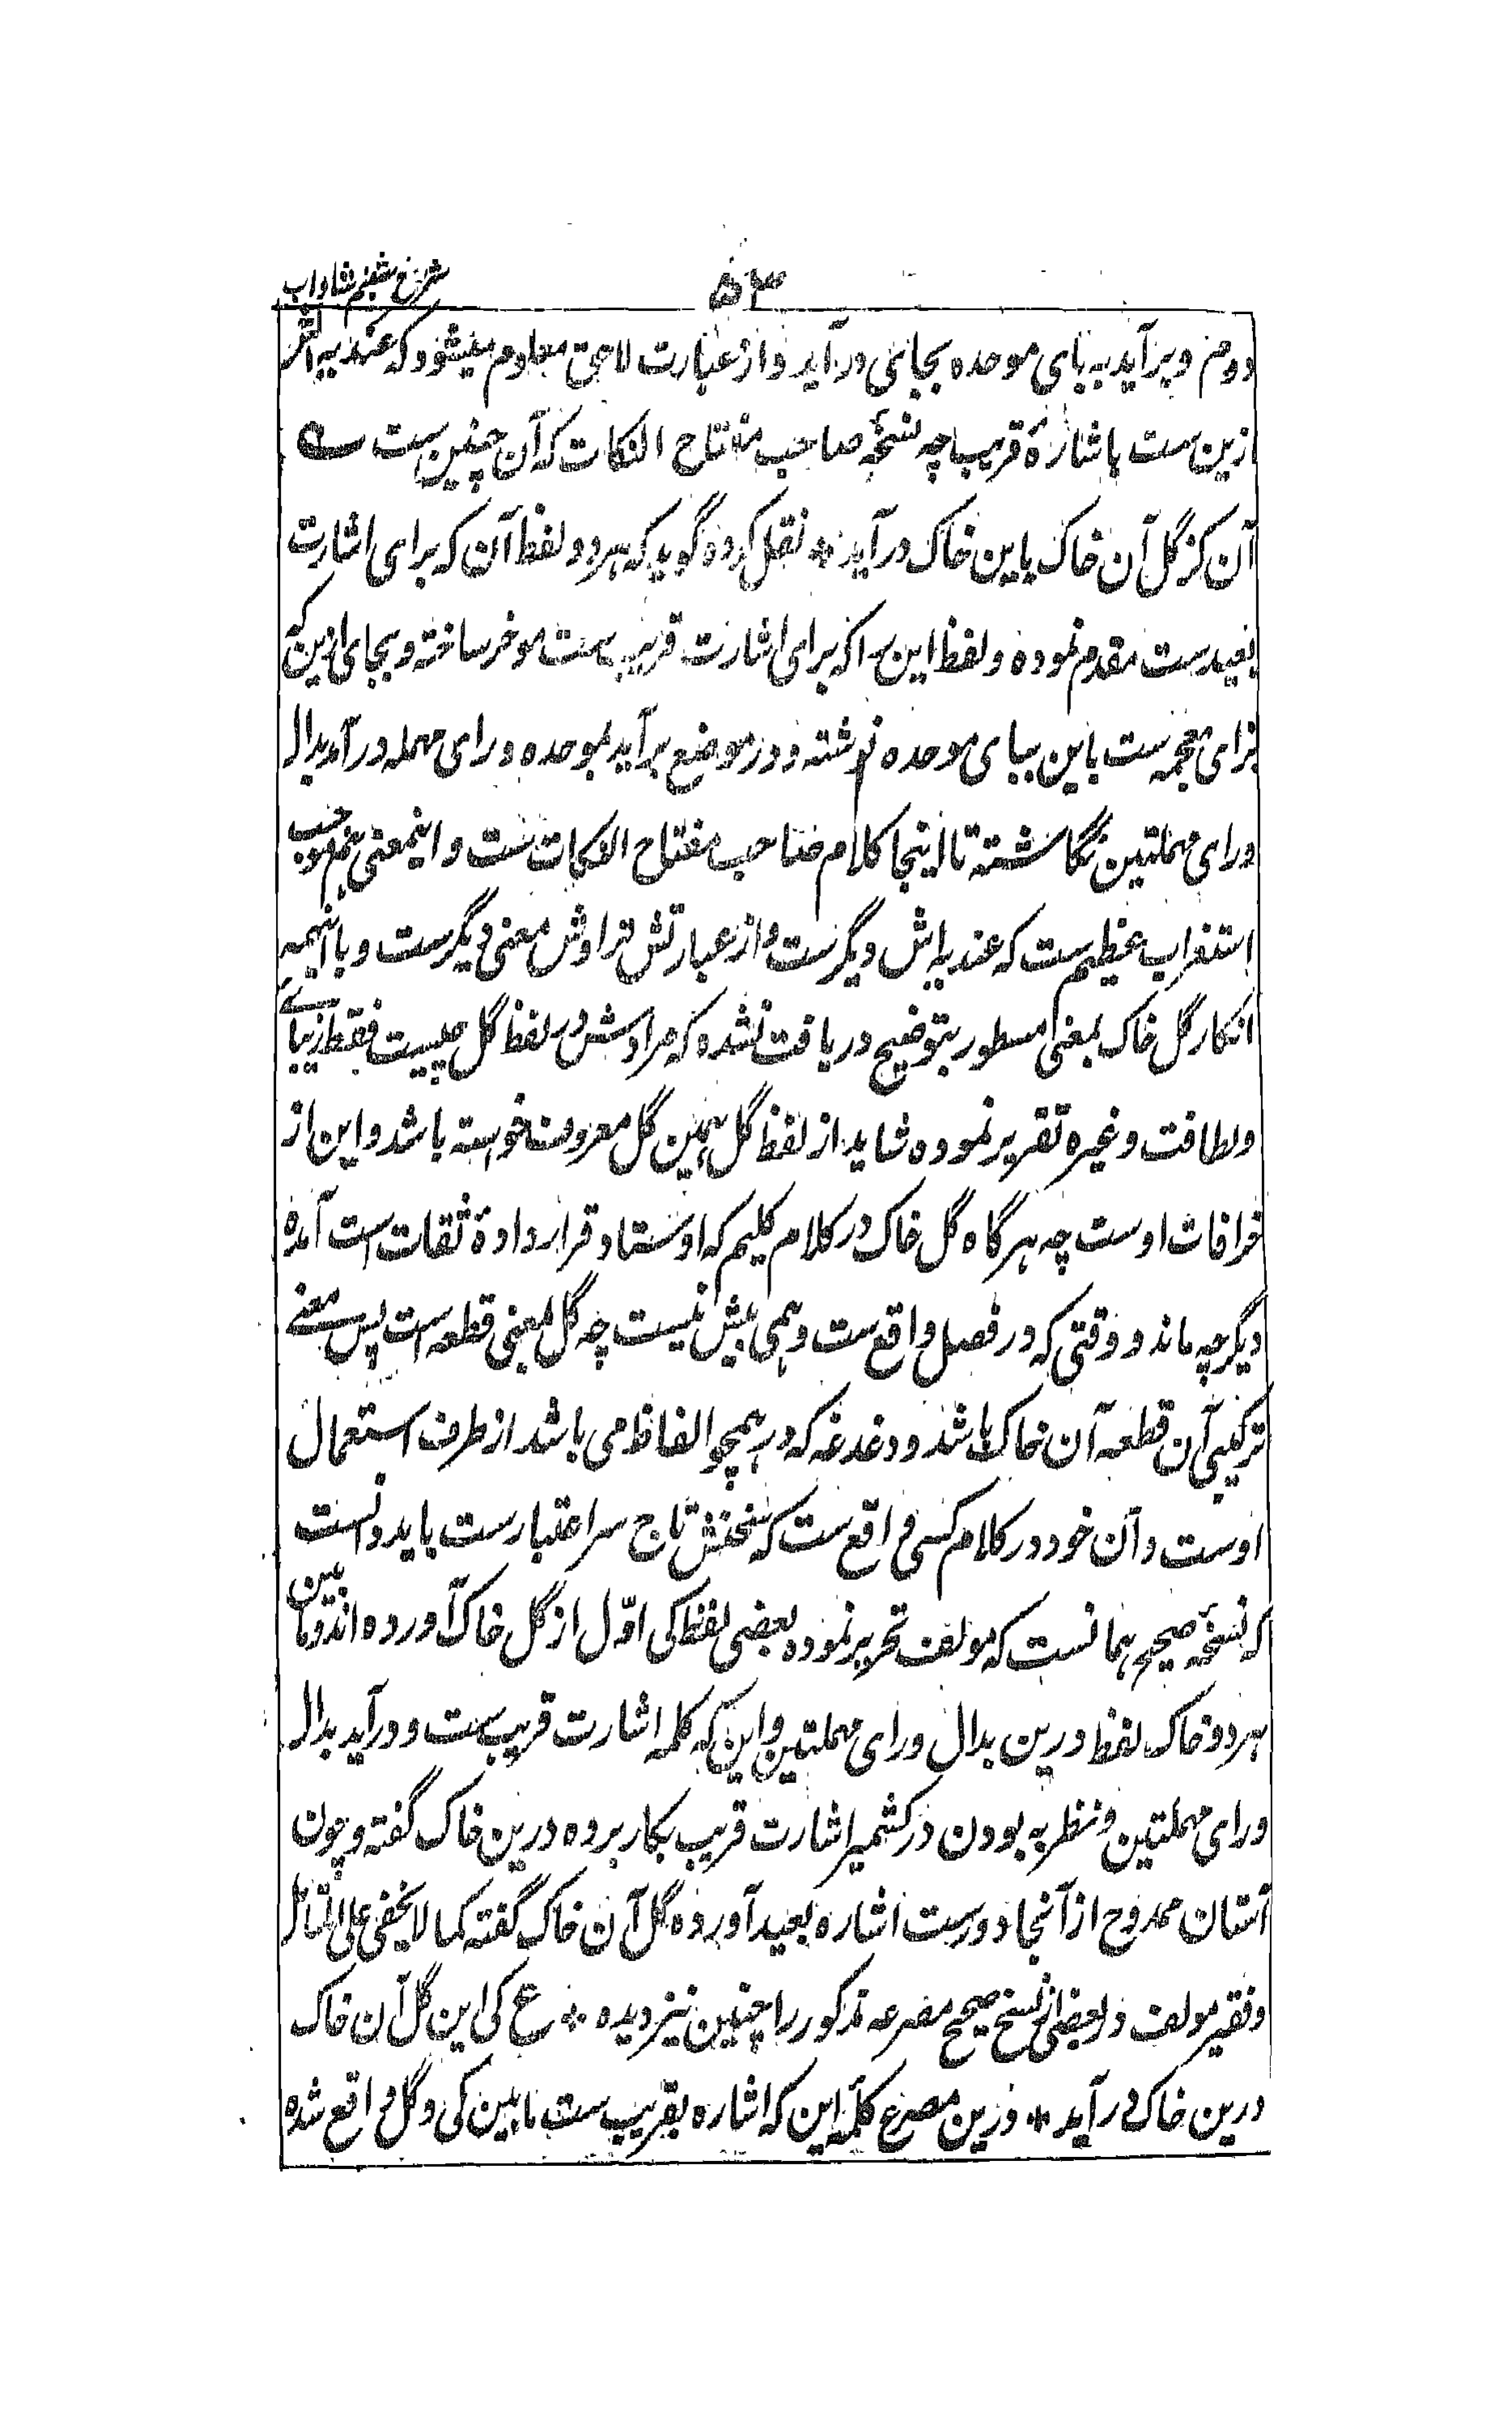 شرح شبنم شاداب
۵۳
دوم و برآید به بای موحده بجایئ درآید و از عبارت لاحق معلوم میشود که عندیه اش
ازین ست باشارهٔ قریب چه نسخهٔ صاحب مفتاح النکات که آن چنین ست
آن کز گل آن خاک باین خاک درآید * نقل کرده گوید که هر دو لفظ آن که برای اشارت
بعیدست مقدم نموده و لفظ این را که برای اشارت قریب ست موخر ساخته و بجای ازین که
بزای معجمه ست باین ببای موحده نوشته و در موضع برآید بموحده و رای مهمله درآید بدال
و رای مهملتین نگاشته تا اینجا کلام صاحب مفتاح النکات ست و اینمعنی هم موجب
استغراب عظیم ست که عندیه اش دیگرست و از عبارتش تراوش معنی دیگرست و با اینهمه
انکار گل خاک بمعنی مسطور بتوضیح دریافت نشده که مرادش در لفظ گل چیست فقط زیبائے
و لطافت و غیره تقریر نموده شاید از لفظ گل همین گل معروف خواسته باشد و این از
خرافات اوست چه هرگاه گل خاک در کلام کلیم که اوستاد قرار دادهٔ ثقات ست آمده
دیگر چه ماند و وقتی که در فصل واقع ست وهمی بیش نیست چه گل بمعنی قطعه است پس معنے
ترکیبی آن قطعه آن خاک باشد و دغدغه که در همچو الفاظ می باشد از طرف استعمال
اوست و آن خود در کلام کسی واقع ست که سخنش تاج سر اعتبارست باید دانست
که نسخهٔ صحیح همانست که مولف تحریر نموده بعضی لفظ کی اوّل از گل خاک آورده اند و مابین
هر دو خاک لفظ درین بدال و رای مهملتین و این که کلمه اشارت قریب ست و درآید بدال
و رای مهملتین و نظر به بودن در کشمیر اشارت قریب بکار برده درین خاک گفته و چون
آستان ممدوح از آنجا دورست اشاره بعید آورده گل آن خاک گفته کما لا یخفی علی المتامل
و فقیر مولف در بعضی از نسخ صحیح مصرعه مذکور را چنین نیز دیده * ع کی این گل آن خاک
درین خاک درآید * درین مصرع کلمهٔ این که اشاره بقریب ست مابین کی و گل واقع شده